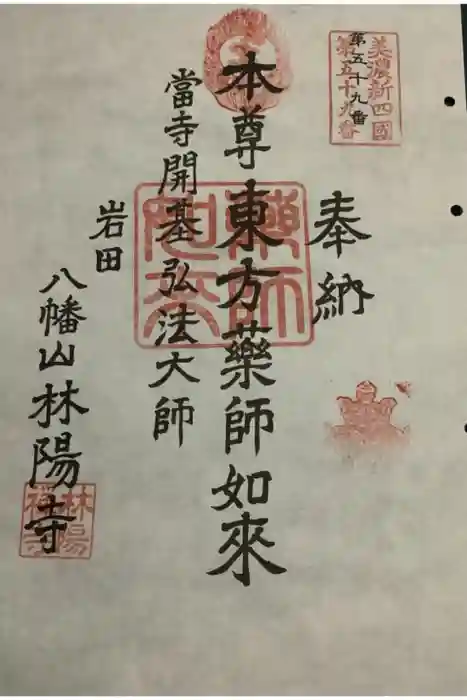 美濃新四國
第五十九番
第五十九番
奉納
本尊東方藥師如來
當寺開基弘法大師
岩田
八幡山林陽寺
藥師
林陽
禅寺